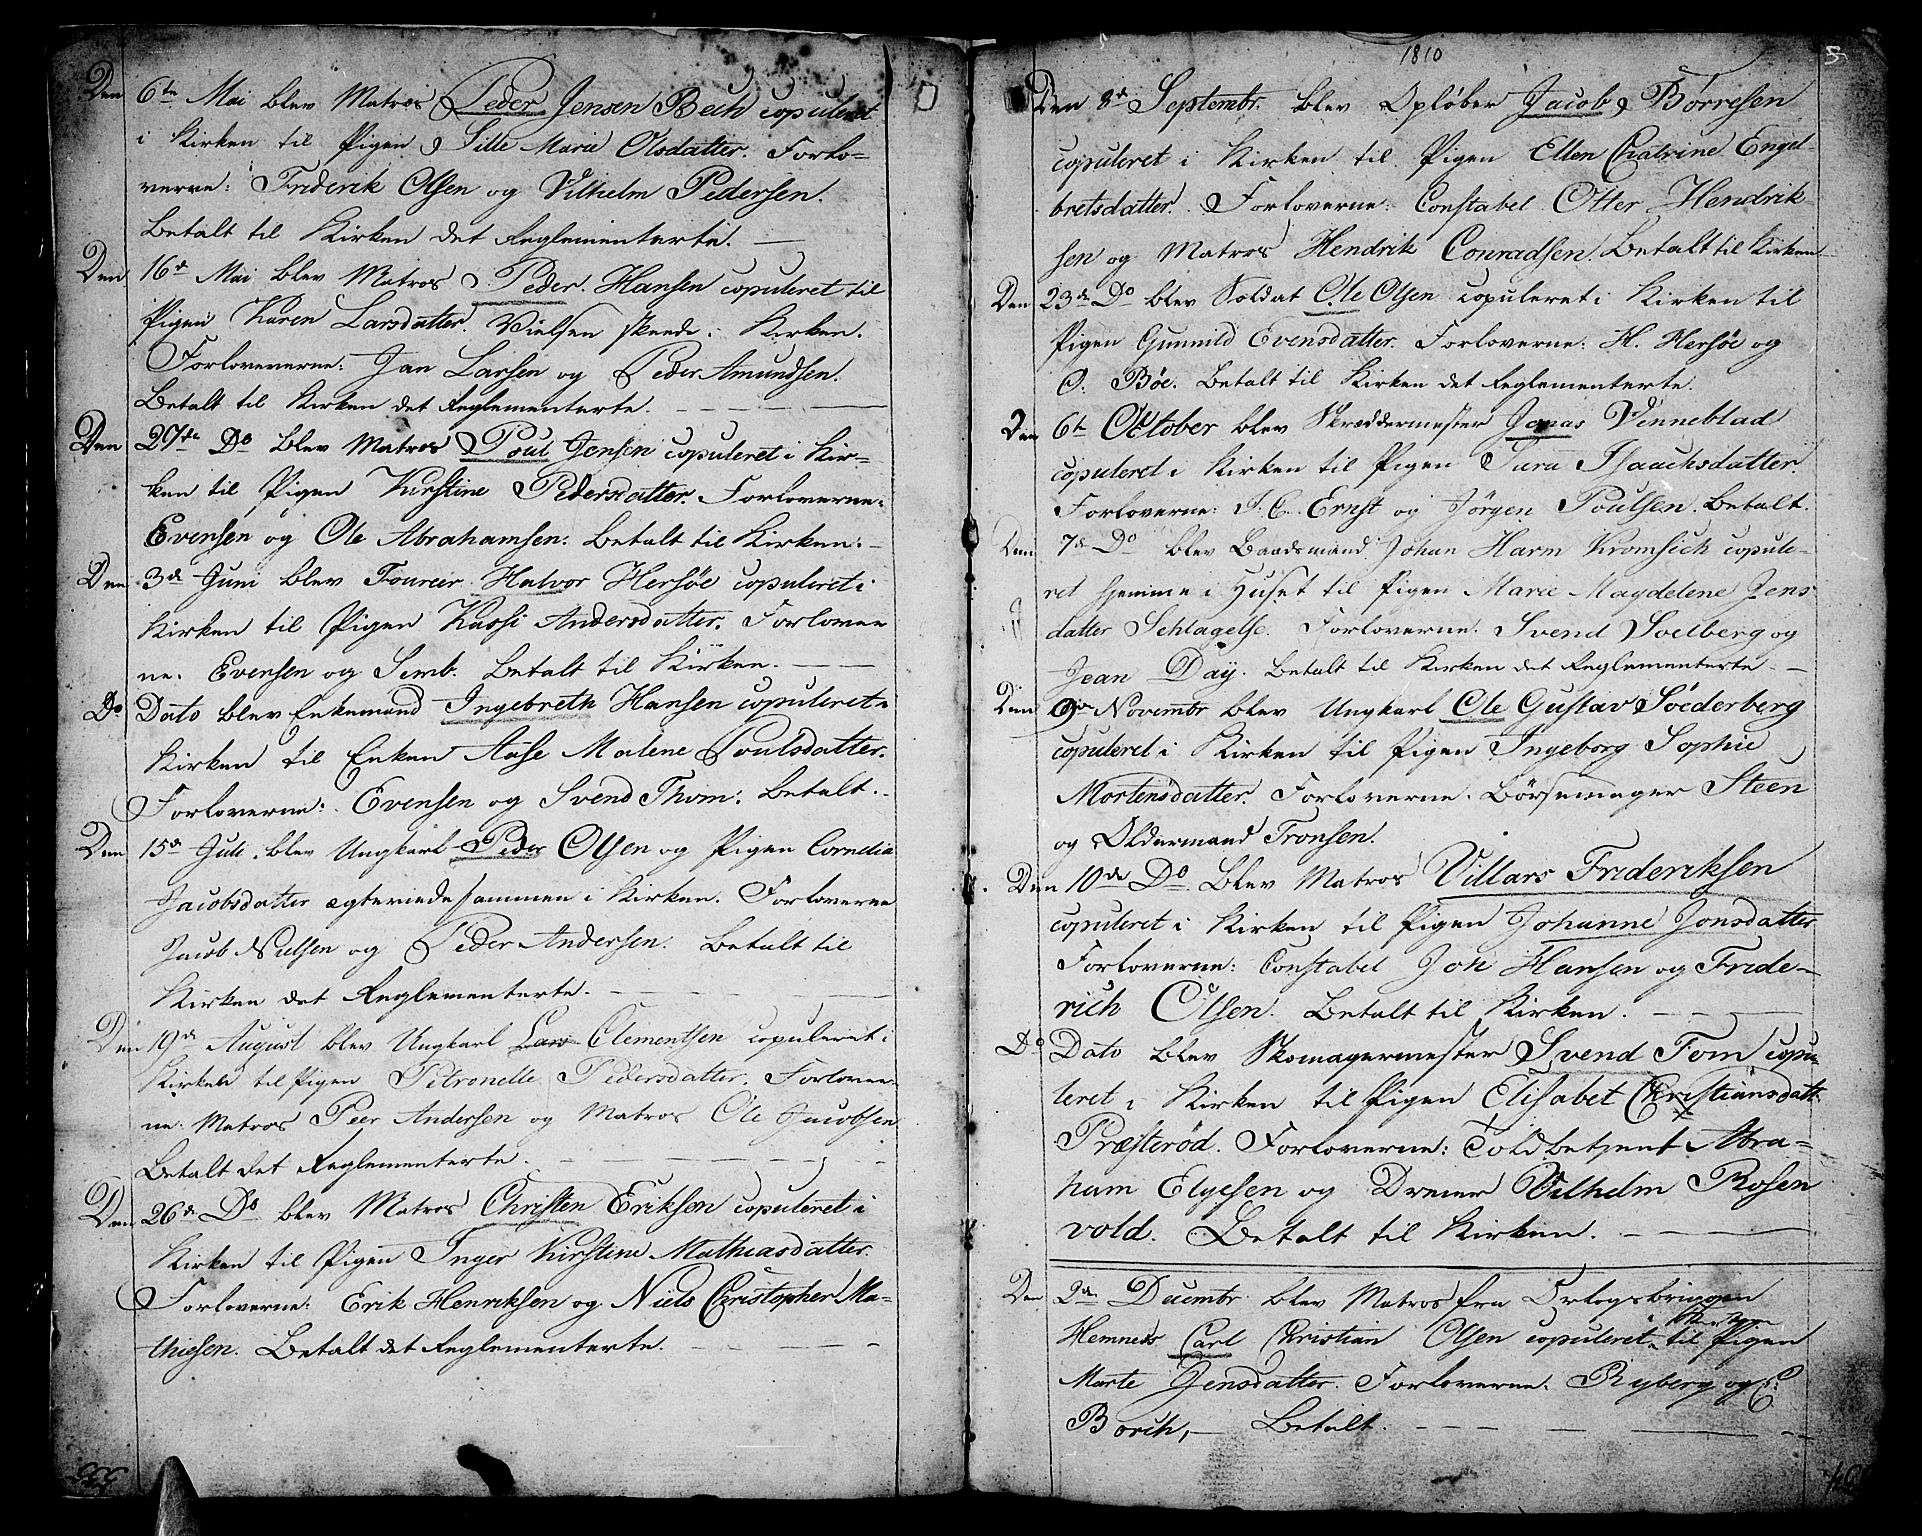 Den 6te Mai blev Matros Peder Jensen Bech copuleret
i Kirken til Pigen Sille Marie Olsdatter. Forlo-
verne: Friderik Olsen og Vilhelm Pedersen.
Betalt til Kirken det Reglementerte. —
Den 16de Mai blev Matros Peder Hansen copuleret til
Pigen Karen Larsdatter. Vielsen skeede i Kirken.
Forloverne: Jan Larsen og Peder Amundsen.
Betalt til Kirken det Reglementerte. — — —
Den 27de Do blev Matros Poul Jensen copuleret i Kir-
ken til Pigen Kirstine Pedersdatter. Forloverne:
Evensen og Ole Abrahamsen. Betalt til Kirken. -
Den 3de Juni blev Foureer Halvor Hersøe copuleret i
Kirken til Pigen Kassi Andersdatter. Forlover
ne. Evensen og Semb. Betalt til Kirken. — —
Do Dato blev Enkemand Ingebreth Hansen copuleret i
Kirken til Enken Aase Malene Poulsdatter.
Forloverne: Evensen og Svend Thom. Betalt. -
Den 15de Juli blev Ungkarl Peder Olsen og Pigen Cornelia
Jacobsdatter ægteviede sammen i Kirken. Forloverne
Jacob Nielsen og Peder Andersen. Betalt til
Kirken det Reglementerte. — — —
Den 19de August blev Ungkarl Lars Clementsen copuleret i
Kirken til Pigen Petronelle Pedersdatter. Forlover-
ne. Matros Peer Andersen og Matros Ole Jacobsen
Betalt det Reglementerte. — — —
Den 26de Do blev Matros Christen Eriksen copuleret i
Kirken til Pigen Inger Kirstine Mathiasdatter.
Forloverne: Erik Henriksen og Niels Christopher Ma-
thiesen. Betalt det Reglementerte. — — —
1810
5
Den 8de Septembr. blev Opløber Jacob Børresen
copuleret i Kirken til Pigen Ellen Chatrine Engel-
bretsdatter. Forloverne: Constabel Otter Hendrik
sen og Matros Hendrik Conradsen. Betalt til Kirken
Den 23de Do blev Soldat Ole Olsen copuleret i Kirken til
Pigen Gunnild Evensdatter. Forloverne: H. Hersøe og
O. Bøe. Betalt til Kirken det Reglementerte.
Den 6te October blev Skræddermester Jonas Vinneblad
copuleret i Kirken til Pigen Sara Isaachsdatter.
Forloverne: J. C. Ernst og Jørgen Poulsen. Betalt.
Den 7de Do blev Baadsmand Johan Harm Kromsich copule-
ret hjemme i Huset til Pigen Marie Magdelene Jens
datter Schlagelse. Forloverne. Svend Soelberg og
Jean Daÿ. Betalt til Kirken det Reglementerte. —
Den 9de Novembr blev Ungkarl Ole Gustav Søederberg
copuleret i Kirken til Pigen Ingeborg Sophie
Mortensdatter. Forloverne. Børsemager Steen
og Oldermand Tronsen.
Den 10de Do blev Matros Villars Frideriksen
copuleret i Kirken til Pigen Johanne Jonsdatter
Forloverne: Constabel Joh Hansen og Fride-
rich Olsen. Betalt til Kirken. — — —
Do Dato blev Skomagermester Svend Tom copu-
leret i Kirken til Pigen Elisabet Christiansdatt.
Præsterød. Forloverne: Toldbetjent Abra-
ham Elgesen og Dreier Vilhelm Rosen
vold. Betalt til Kirken. — —
Den 2den Decembr blev Matros fra Orlogsbriggen
Hemnes Carl Christian Olsen copuleret til Pigen
Marte Jensdatter. Forloverne. Ryberg og C:
Borch, — Betalt. — — —